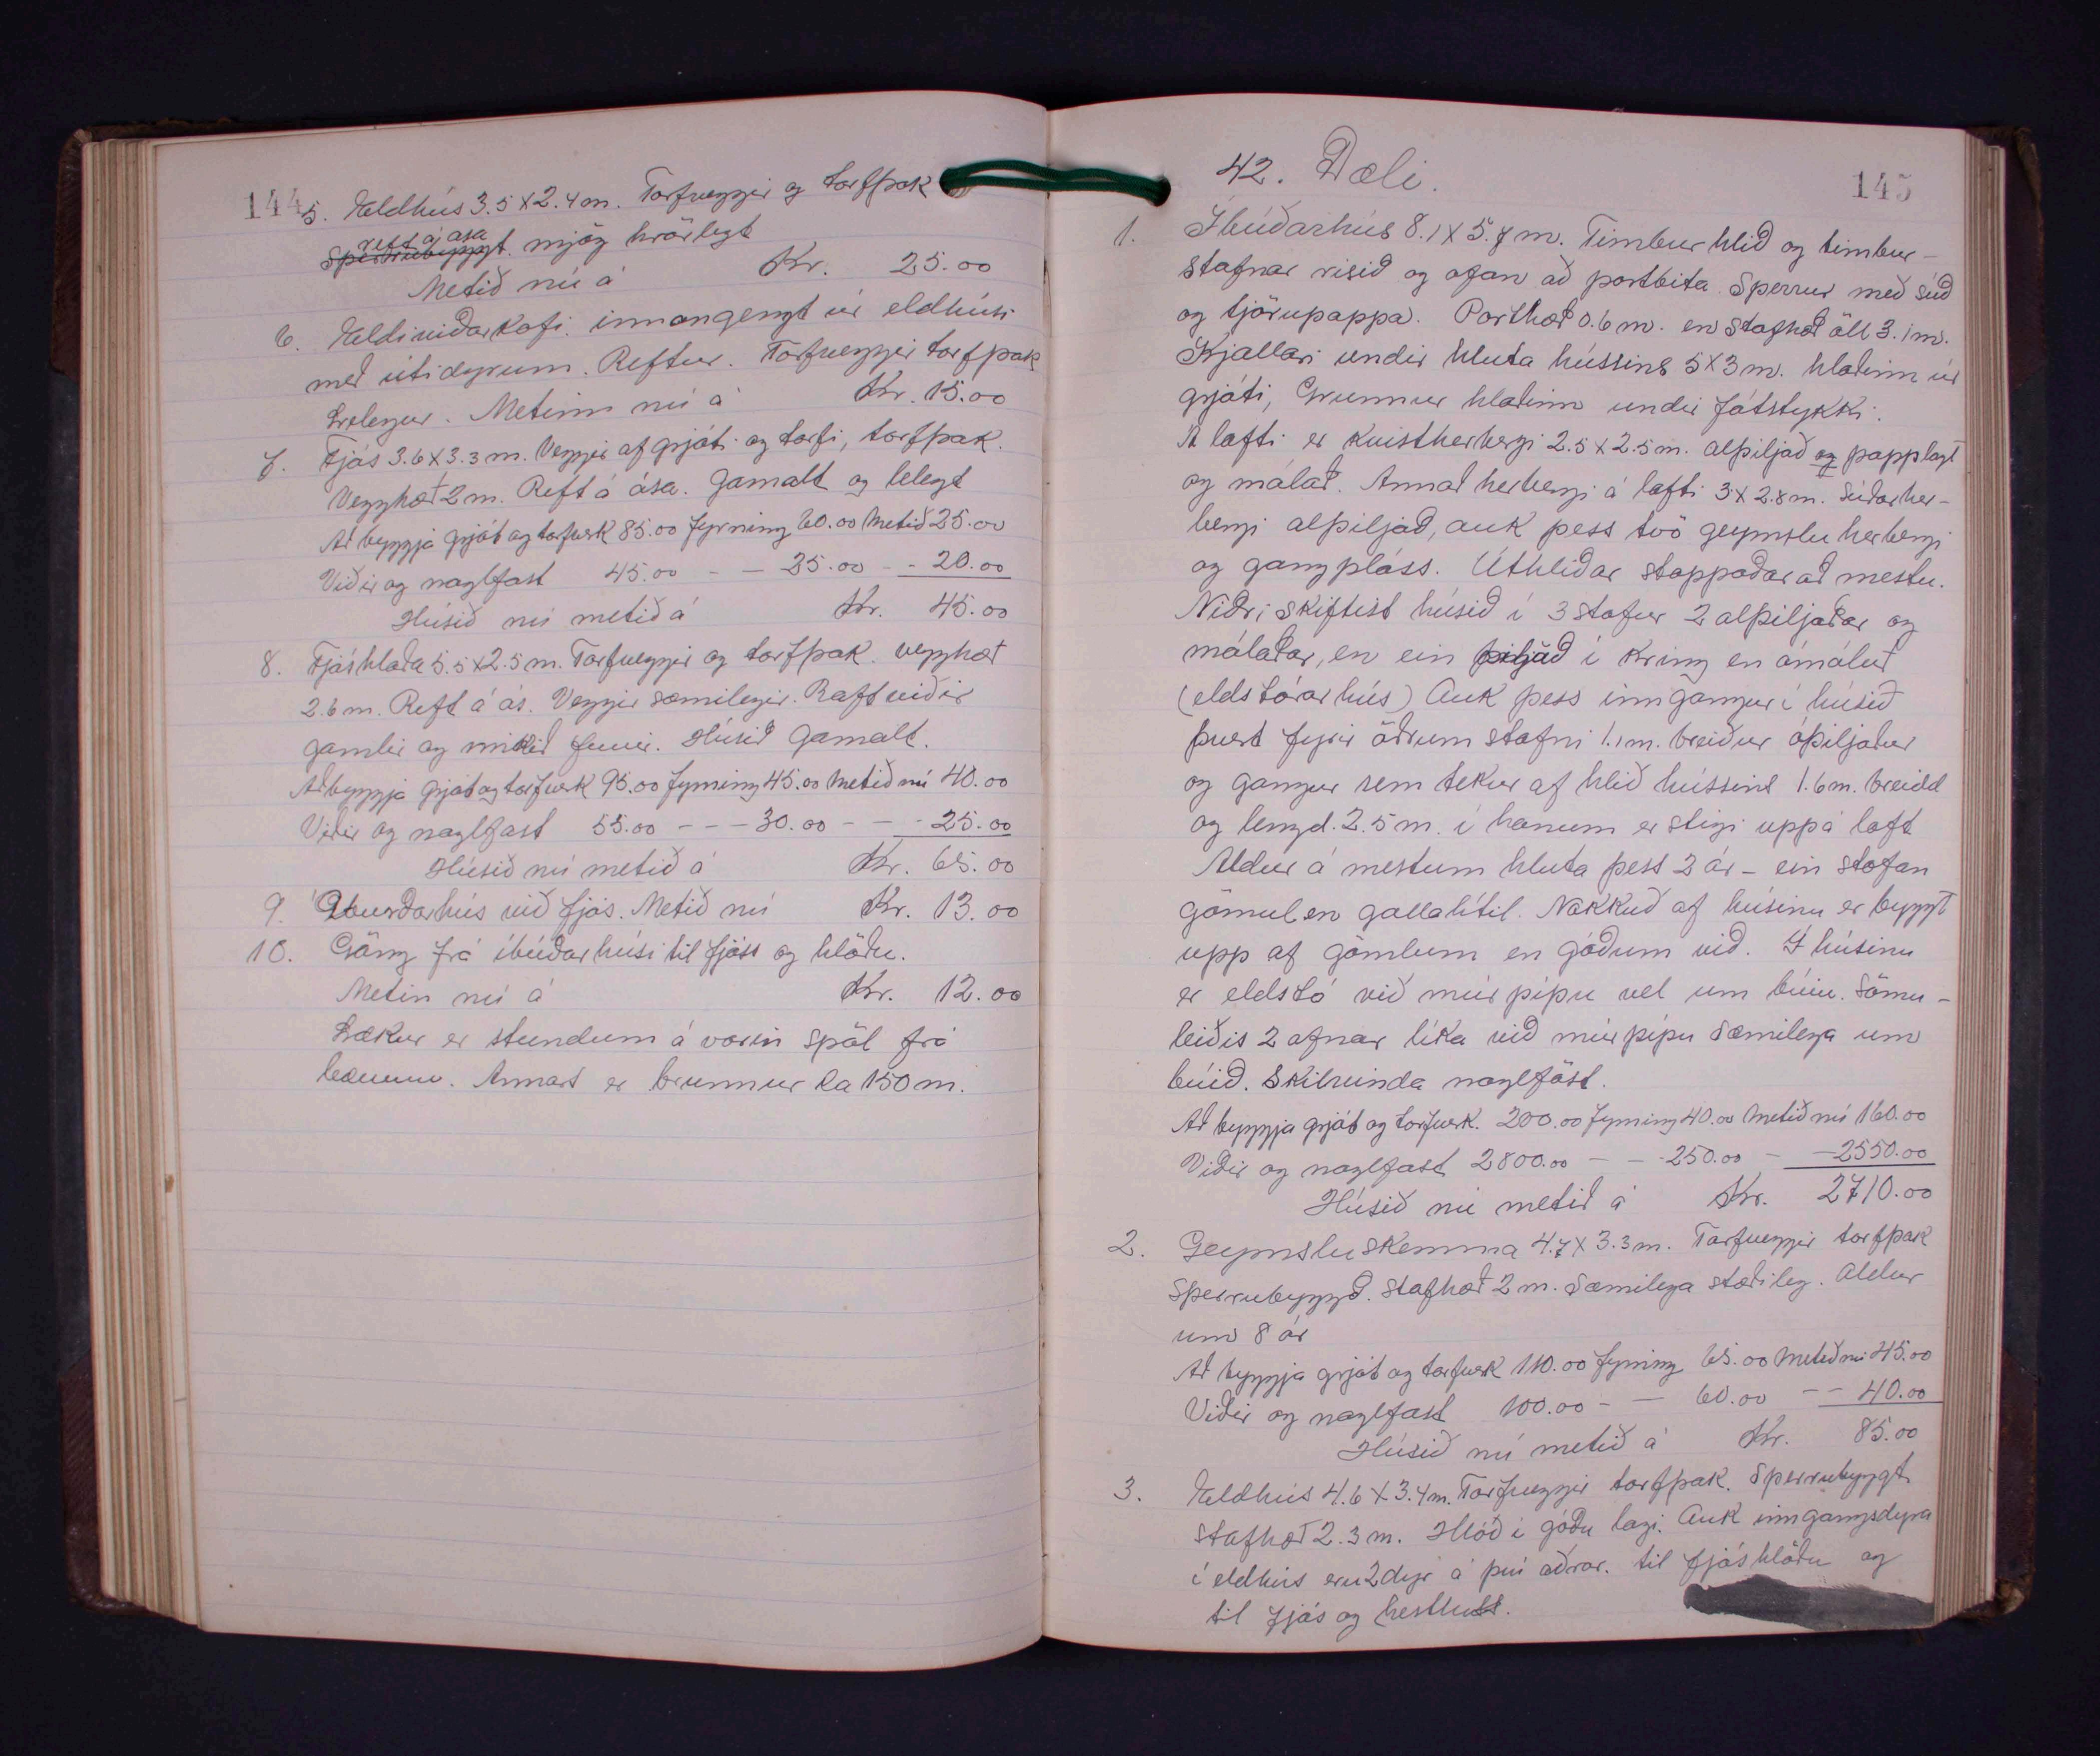 144
5. Eldhús 3.5 X 2.4 m. Torfveggir og torfþak
reft á ása
Sperrubyggt. mjög hrörlegt
Metið nú á Kr. 25.00
6. Eldiviðarkofi. innangengt úr eldhúsi
með útidyrum. Reftur. Torfveggir torfþak
Lrelegur. Metinn nú á Kr. 15.00
7. Fjós 3.6 X 3.3 m. Veggir af grjóti og torfi, torfþak.
Vegghæð 2 m. Reft á ása. Gamalt og lelegt
Að byggja grjót og torfverk 85.00 fyrning 60.00 Metið 25.00
Viðir og naglfast 45.00 - - 25.00 - - 20.00
Húsið nú metið á Kr. 45.00
8. Fjóshlaða 5.5 X 2.5 m. Torfveggir og torfþak. vegghæð
2.6 m. Reft á ás. Veggir sæmilegir. Raftviðir
gamlir og mikið fúnir. Húsið Gamalt.
Að byggja grjót og torfverk 95.00 fyrning 45.00 Metið nú 40.00
Viðir og naglfast 55.00 - - - 30.00 - - - 25.00
Húsið nú metið á Kr. 65.00
9. Áburðarhús við fjós. Metið nú Kr. 13.00
10. Göng frá íbúðarhúsi til fjóss og hlöðu.
Metin nú á Kr. 12.00
Lækur er stundum á vorin spöl frá
bænum. Annars er brunnur ca 150 m.
145
42. Dæli.
1. Íbúðarhús 8.1 X 5.7 m. Timburhlið og timbur-
stafnar risið og ofan að portbita. Sperrur með súð
og tjörupappa. Porthæð 0.6 m. en stafhæð öll 3.1 m.
Kjallari undir hluta hússins 5 X 3 m. hlaðinn úr
grjóti, Grunnur hlaðinn undir fótstykki.
Á lofti er kvistherbergi 2.5 X 2.5 m. alþiljað og papplagt
og málað. Annað herbergi á lofti 3 X 2.8 m. Súðarher-
bergi alþiljað, auk þess tvö geymslu herbergi
og gangpláss. Úthliðar stoppaðar að mestu.
Niðri skiftist húsið í 3 stofur 2 alþiljaðar og
málaðar, en ein þiljuð í kring en ómáluð
(eldstóarhús) Auk þess inngangur í húsið
þvert fyrir öðrum stafni 1.1 m. breiður óþiljaður
og gangur sem tekur af hlið hússins 1.6 m. breidd
og lengd. 2.5 m. í honum er stigi uppá loft
Aldur á mestum hluta þess 2 ár - ein stofan
gömul en gallalítil. Nokkuð af húsinu er byggt
upp af gömlum en góðum við. Í húsinu
er eldstó við múrpípu vel um búin. Sömu-
leiðis 2 ofnar líka við múrpípu sæmilega um
búið. Skilvinda naglföst.
Að byggja grjót og torfverk. 200.00 fyrning 40.00 Metið nú 160.00
Viðir og naglfast 2800.00 - - 250.00 - - 2550.00
Húsið nú metið á Kr. 2710.00
2. Geymsluskemma 4.7 X 3.3 m. Torfveggir torfþak
Sperrubyggð. stafhæð 2 m. Sæmilega stæðileg. Aldur
um 8 ár
Að byggja grjót og torfverk 110.00 fyrning 65.00 Metið nú 45.00
Viðir og naglfast 100.00 - - 60.00 - - 40.00
Húsið nú metið á Kr. 85.00
3. Eldhús 4.6 X 3.4 m. Torfveggir torfþak. Sperrubyggt
stafhæð 2.3 m. Hlóð í góðu lagi. Auk inngangsdyra
í eldhús eru 2 dyr á því aðrar. til fjóshlöðu og
til fjós og hesthúss.